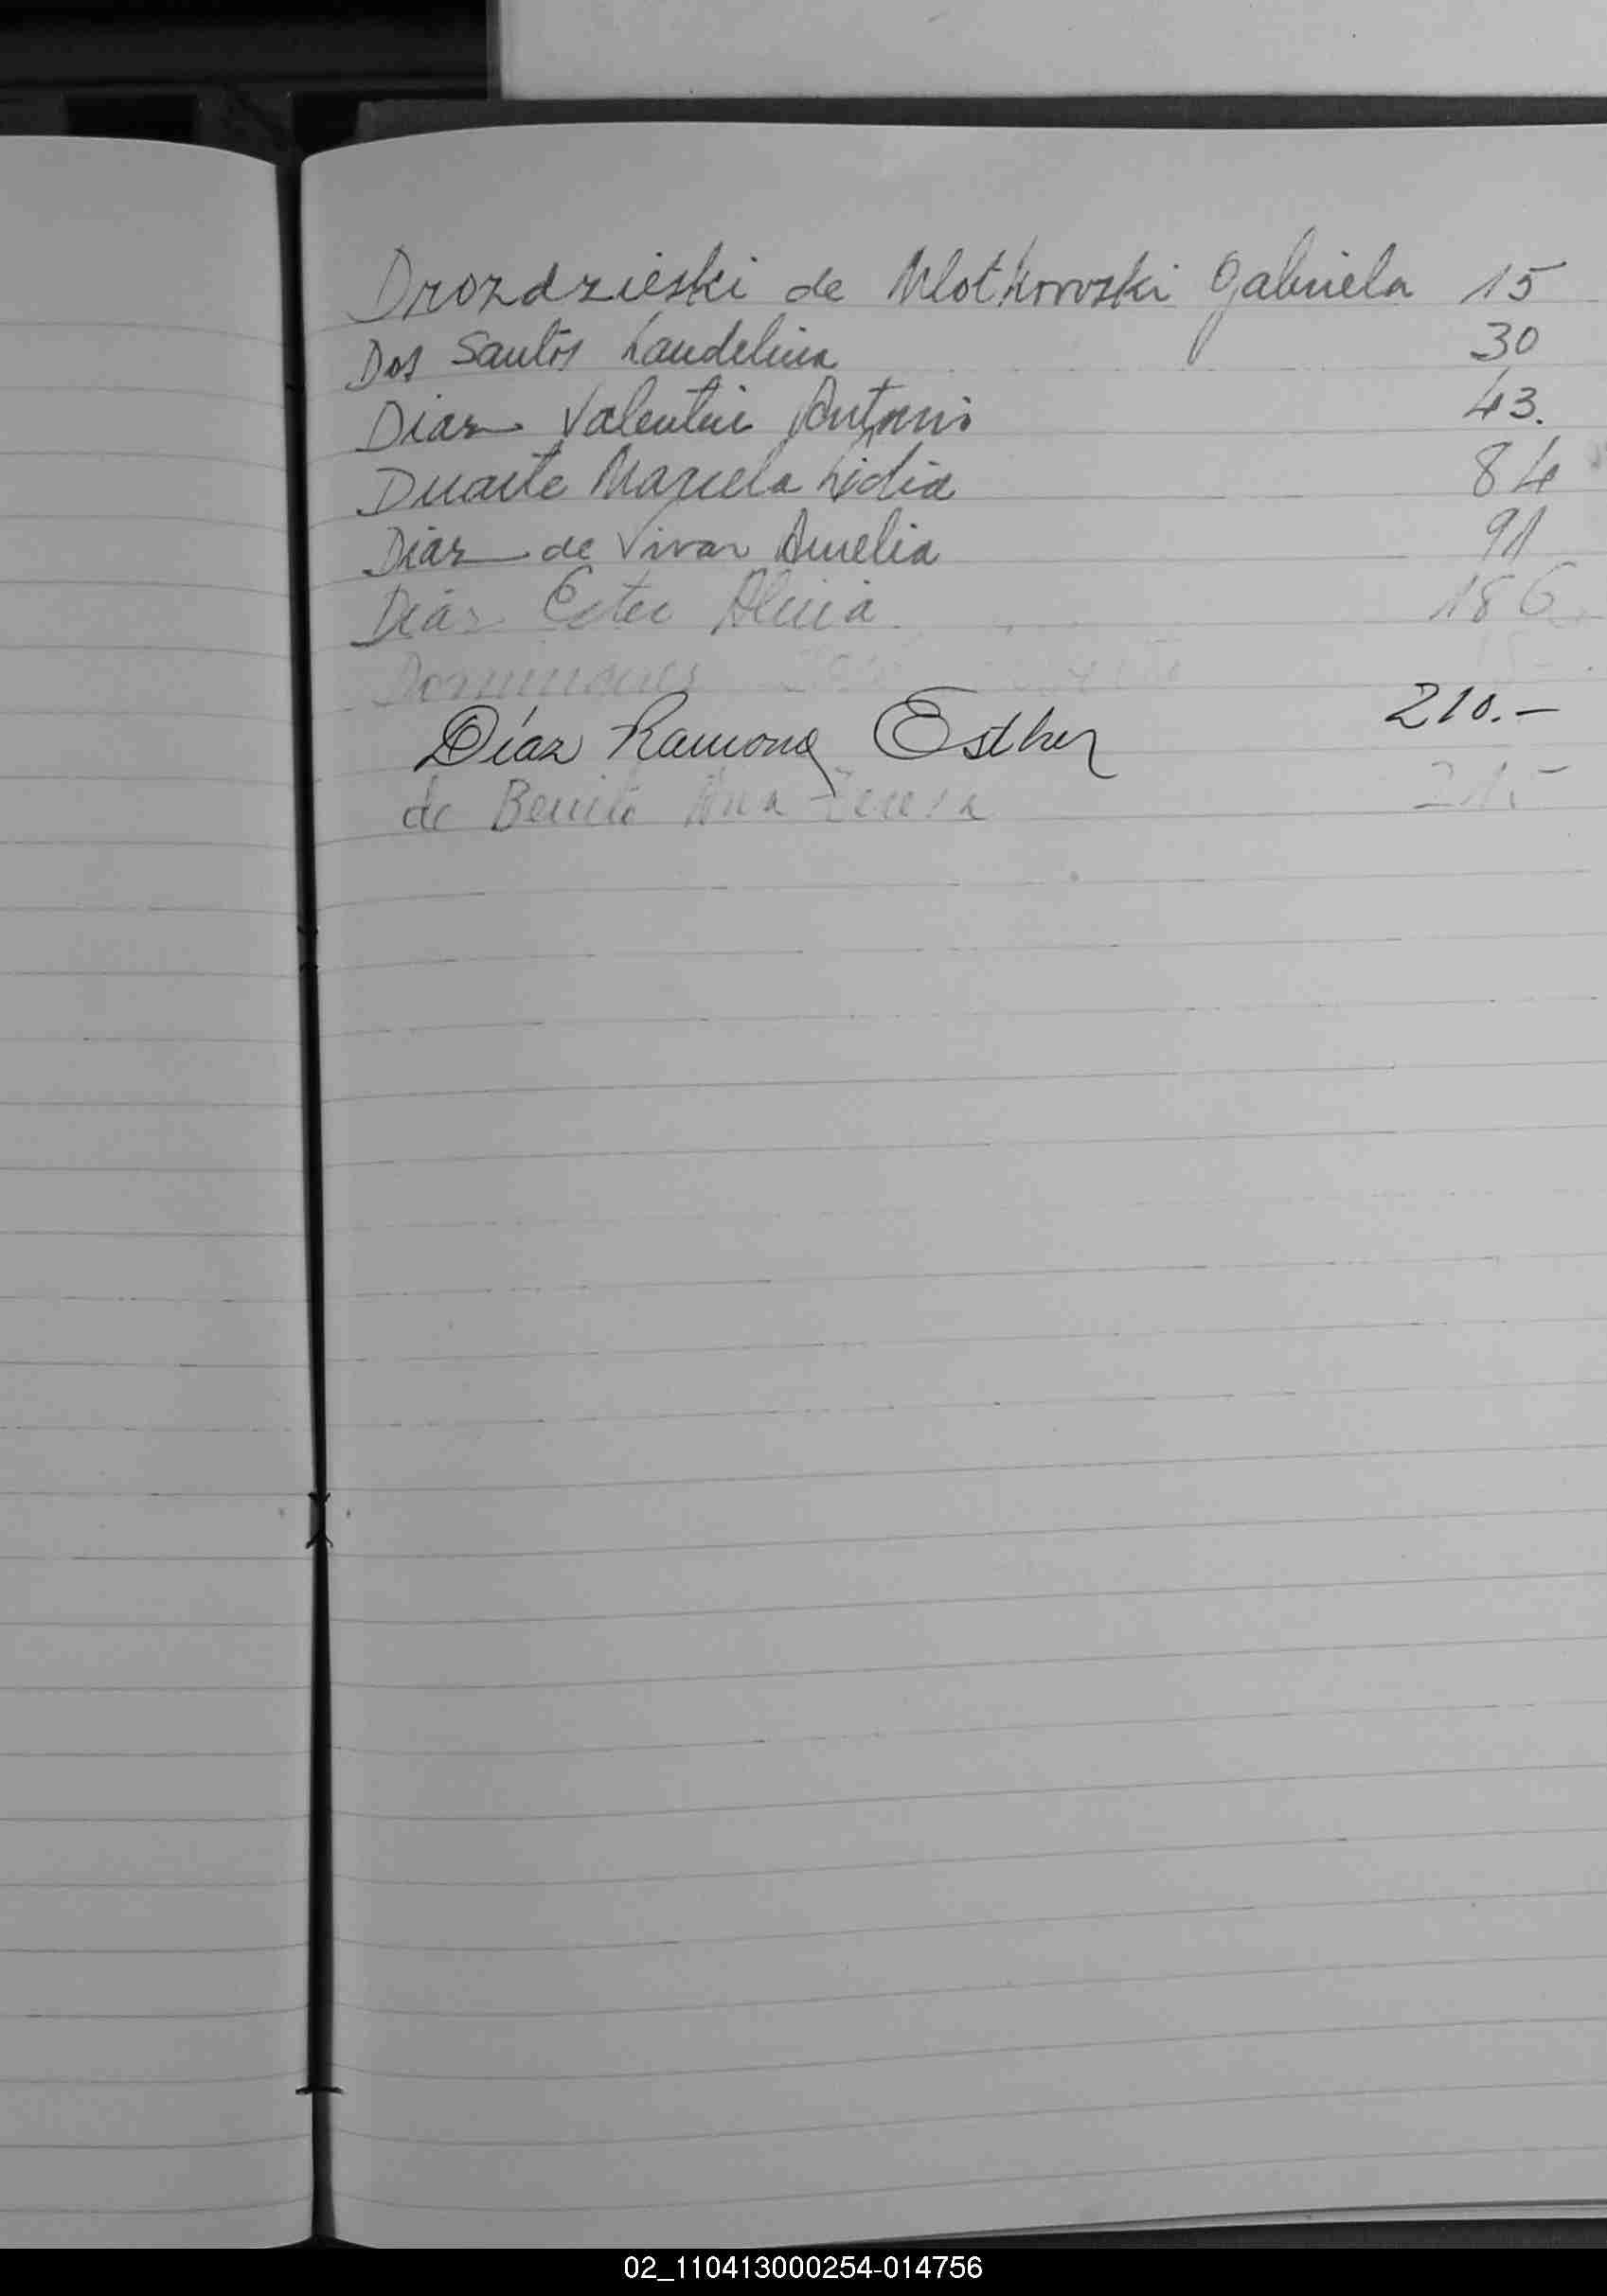 Drozdzieski de Mlotkowski Gabriela 15
Dos Santos Laudelina 30
Diaz Valentin Antonio 43.
Duarte Marcela Lidia 84
Diaz de Vivar Amelia 91
Diaz Ester Alicia 186
Dominguez
Díaz Ramona Esther 210.-
de Benito Ana Teresa
02_110413000254-014756